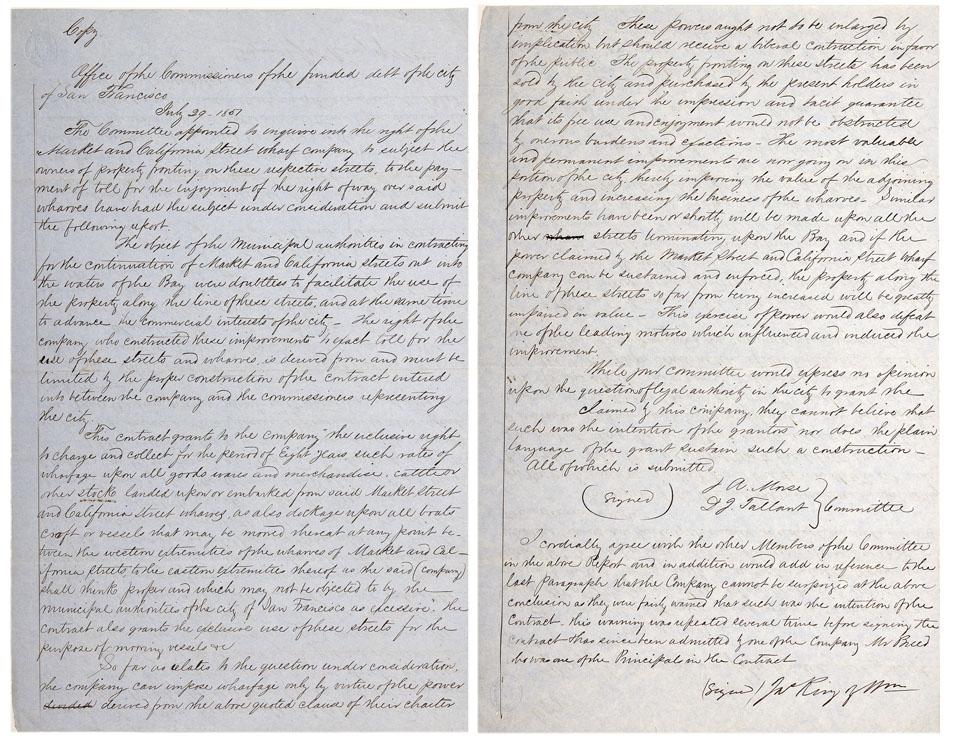 Copy
Office of the Commissioners of the funded debt of the city
of San Francisco
July 29. 1851
The Committee appointed to inquire into the right of the
Market and California Street wharf company to subject the
owners of property fronting on these respective streets, to the pay-
ment of toll for the enjoyment of the right of way over said
wharves have had the subject under consideration and submit
the following report.
The object of the Municipal authorities in contracting
for the continuation of Market and California streets out into
the waters of the Bay were doubtless to facilitate the use of
the property along the line of these streets, and at the same time
to advance the commercial interests of the city – The right of the
company who constructed these improvements to exact toll for the
use of these streets and wharves, is derived from and must be
limited by the proper construction of the contract entered
into between the company and the commissioners representing
the city.
This contract grants to the company "the exclusive right
to charge and collect for the period of Eight years, such rates of
wharfage upon all goods wares and merchandise, cattle or
other stock landed upon or embarked from said Market Street
and California Street wharves, as also dockage upon all boats
craft or vessels that may be moored thereat at any point be-
tween the western extremities of the wharves of Market and Cal-
ifornia streets to the eastern extremities thereof as the said (company)
shall think proper and which may not be objected to by the
municipal authorities of the city of San Francisco as excessive. The
contract also grants the exclusive use of these streets for the
purpose of mooring vessels &c
So far as relates to the question under consideration,
the company can impose wharfage only by virtue of the power
derived from the above quoted clause of their charter
from the city These powers aught not to be enlarged by
implication but should receive a literal contruction in favor
of the public The property fronting on these streets has been
sold by the city and purchased by the present holders in
good faith under the impression and tacit guarantee
that its free use and enjoyment would not be obstructed
by onerous burdens and exactions – The most valuable
and permanent improvements are now going on in this
portion of the city, thereby improving the value of the adjoining
property and increasing the business of the wharves. Similar
improvements have been or shortly will be made upon all the
other streets terminating upon the Bay and if the
power claimed by the Market Street and California Street Wharf
company can be sustained and enforced, the property along the
line of these streets so far from being increased will be greatly
impaired in value – This exercise of power would also defeat
one of the leading motives which influenced and induced the
improvement.
While your committee would express no opinion
upon the question of legal authority in the city to grant the
claimed by this company, they cannot believe that
such was the intention of the grantors nor does the plain
language of the grant sustain such a construction –
All of which is submitted
(Signed)
J A. Morse
D J Tallant
Committee
I cordially agree with the other Members of the Committee
in the above Report and in addition would add in reference to the
last Paragraph that the Company cannot be surprized at the above
conclusion as they were fairly warned that such was the intention of the
Contract. this warning was repeated several times before signing the
contract & has since been admitted by one of the Company Mr Breed
who was one of the Principals in the Contract
(Signed) Jas King of Wm